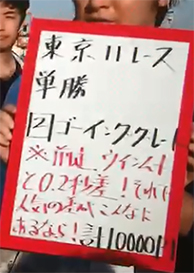 東京11レース
単勝
[2]ゴーイングクレー
※前走 ウインムート
と0.2秒差！それで
人気の差がこんなに
あるなら！計10000円